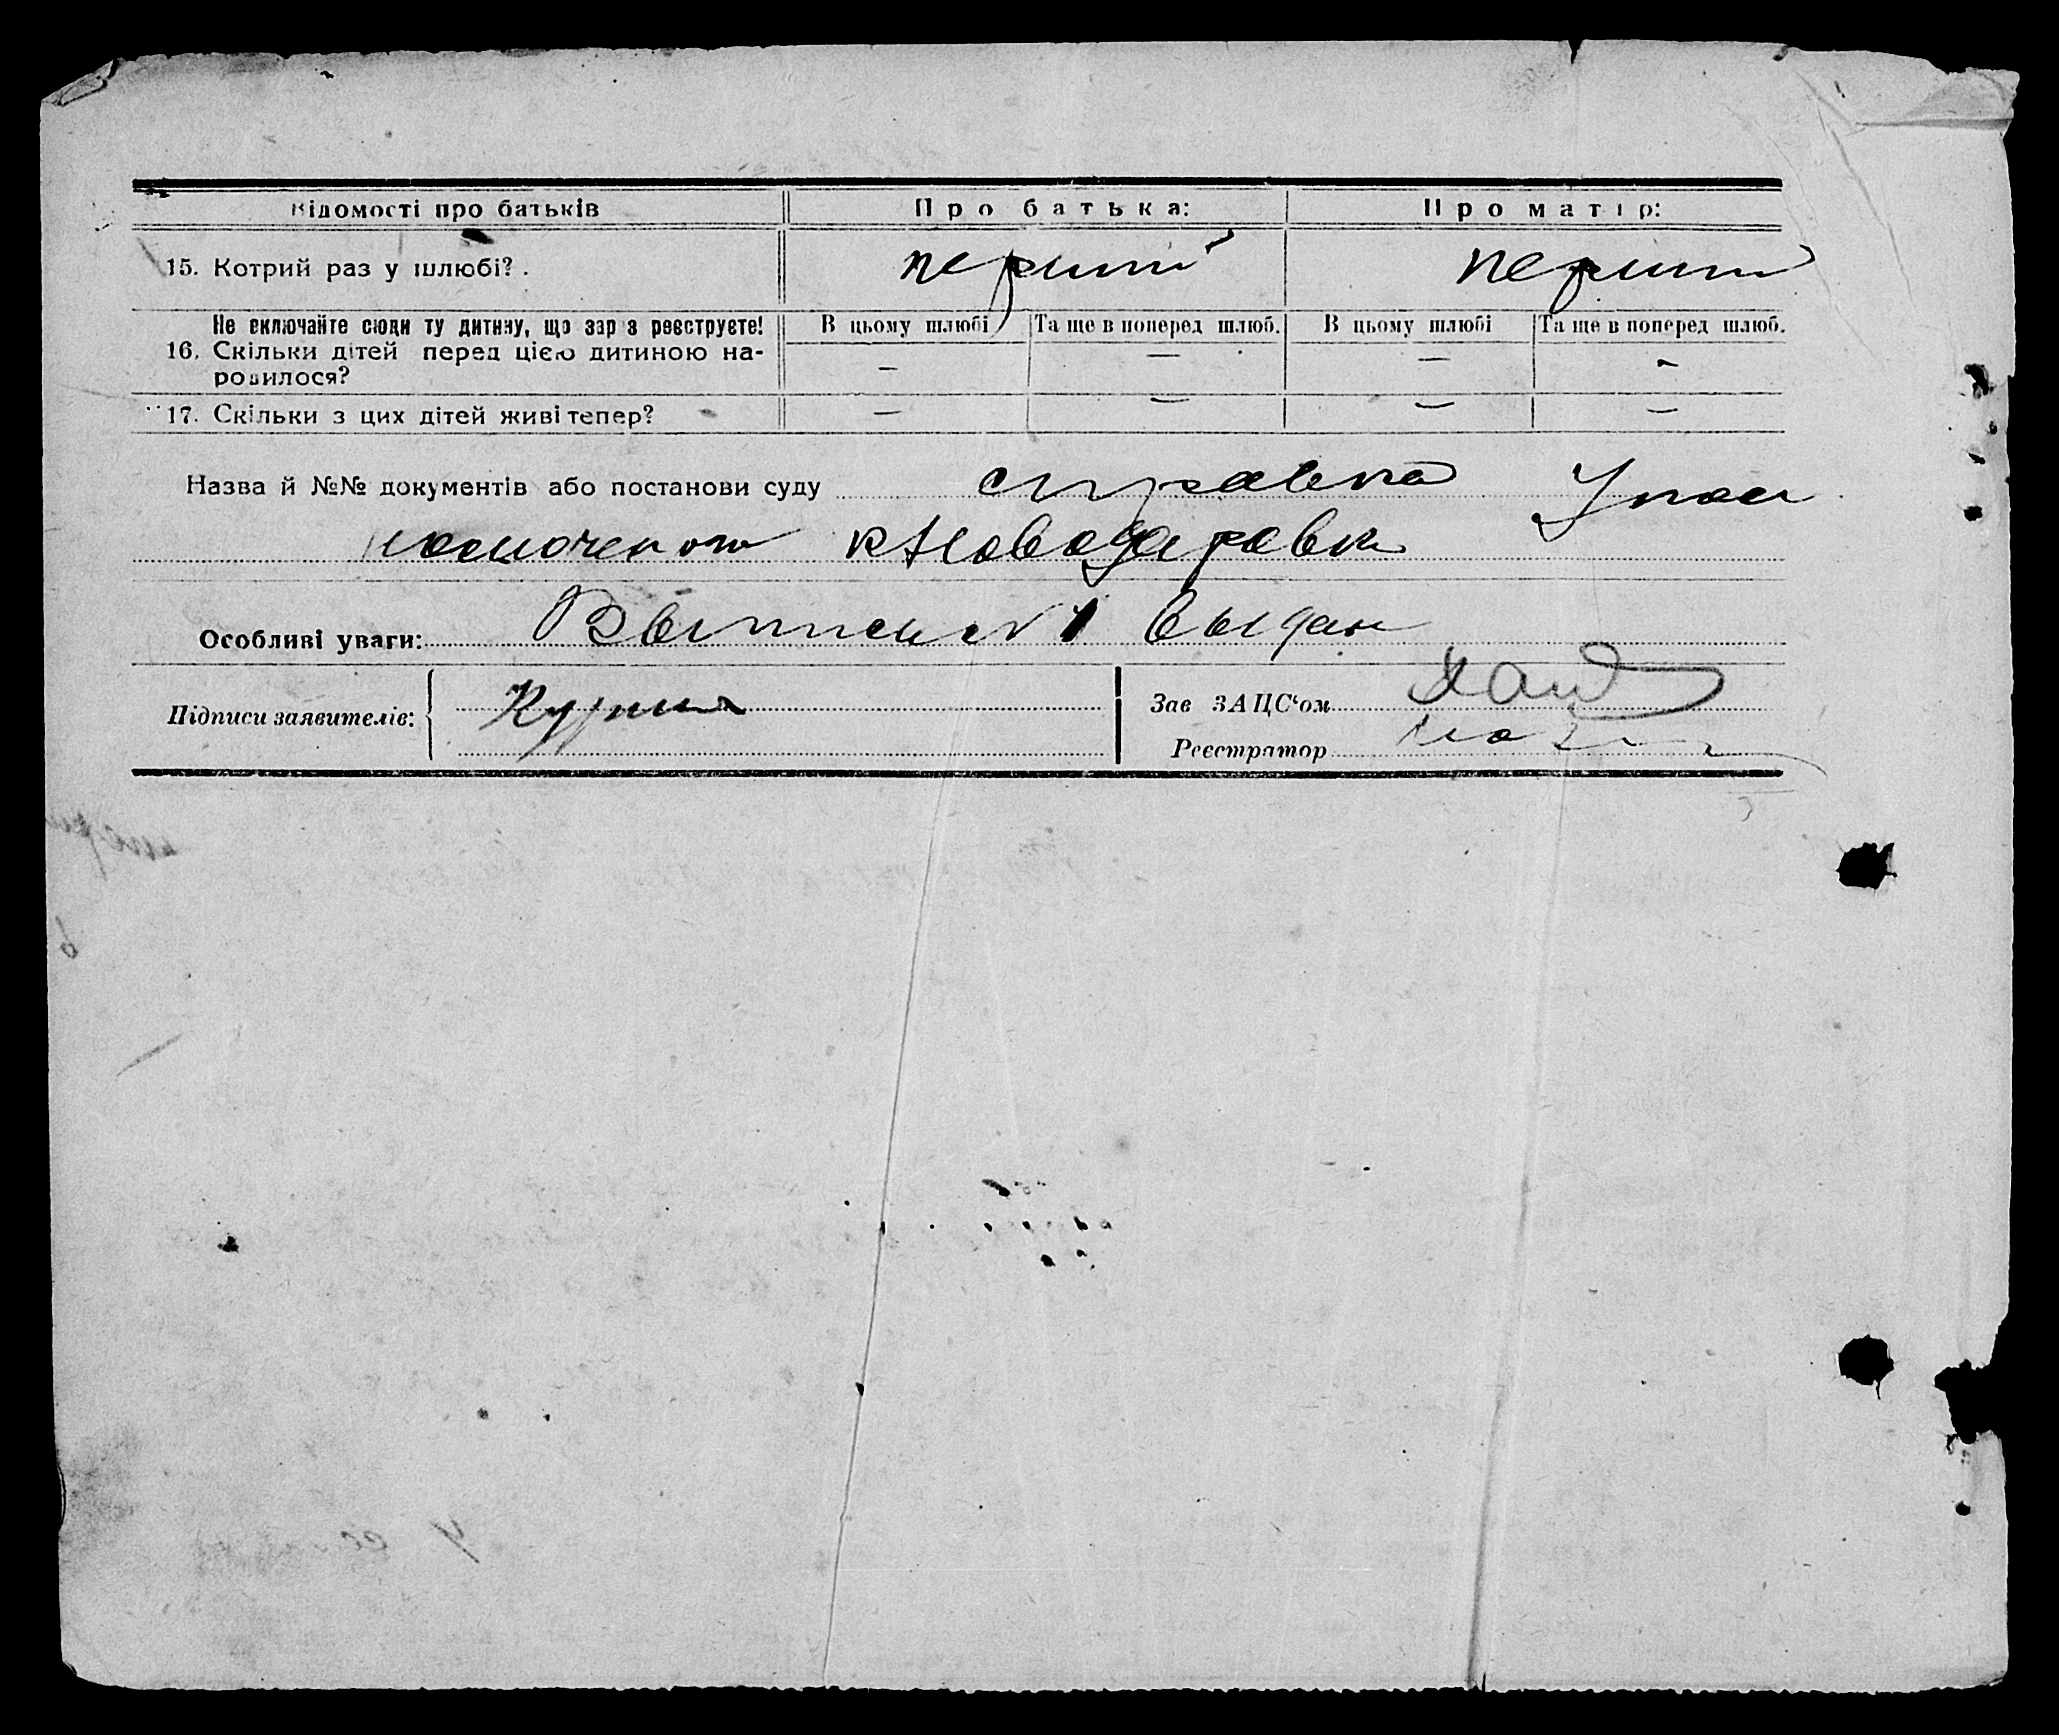 Відомості про батьків Про батька: Про матір:
15. Котрий раз у шлюбі? . перший перший
Не включайте сюди ту дитину, що зараз реєструєте! В цьому шлюбі Та ще в поперед шлюб. В цьому шлюбі Та ще в поперед шлюб.
16. Скільки дітей перед цією дитиною на- — — — —
родилося?
17. Скільки з цих дітей живі тепер? — — — —
Назва й №№ документів або постанови суду справка Упол
номоченого
Особливі уваги: выдан
Підписи заявителів:
Зав ЗАЦС‘ом
Реєстратор